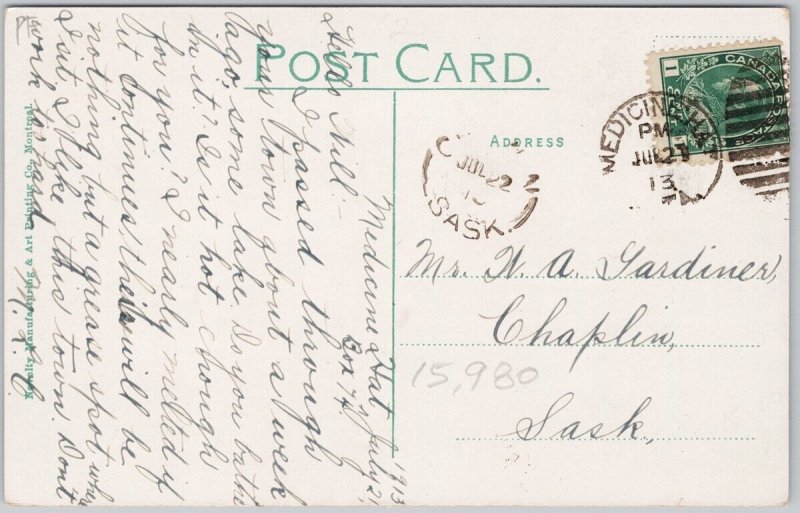 POST CARD.
ADDRESS
CANADA POSTAGE
1
MEDICINE HAT
PM
JUL 21
13
JUL 22
13
SASK.
Mr. W. A. Gardiner,
Chaplin,
Sask,
15,980
Medicine Hat July 21, 1913
Box 74
Hello Will:-
I passed through
your town about a week
ago, some lake. Do you bathe
in it? Is it hot enough
for you? I nearly melted if
it continues, there will be
nothing but a grease spot where
I sit. I like this town. Don't
work
Novelty Manufacturing & Art Printing Co., Montreal